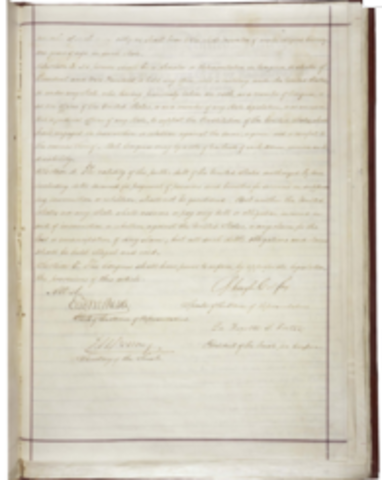 years of age in such State.
Section 3. No person shall be a Senator or Representative in Congress, or elector of
President and Vice President, or hold any office, civil or military, under the United States,
or under any State, who, having previously taken an oath, as a member of Congress, or
as an officer of the United States, or as a member of any State legislature, or as an
or judicial officer of any State, to support the Constitution of the United States, shall
have engaged in insurrection or rebellion against the same, or given aid or comfort to
the enemies thereof. But Congress may by a vote of two thirds of each House, remove such
disability.
Section 4. The validity of the public debt of the United States, authorized by law,
including debts incurred for payment of pensions and bounties for services in suppressing
insurrection or rebellion, shall not be questioned. But neither the United
States nor any State shall assume or pay any debt or obligation incurred in
aid of insurrection or rebellion against the United States, or any claim for the
loss or emancipation of any slave; but all such debts, obligations and claims
shall be held illegal and void.
Section 5. The Congress shall have power to enforce, by appropriate legislation,
the provisions of this article.
Attest.
Speaker of the House of Representatives.
Clerk of the House of Representatives.
President of the Senate pro tempore.
Secretary of the Senate